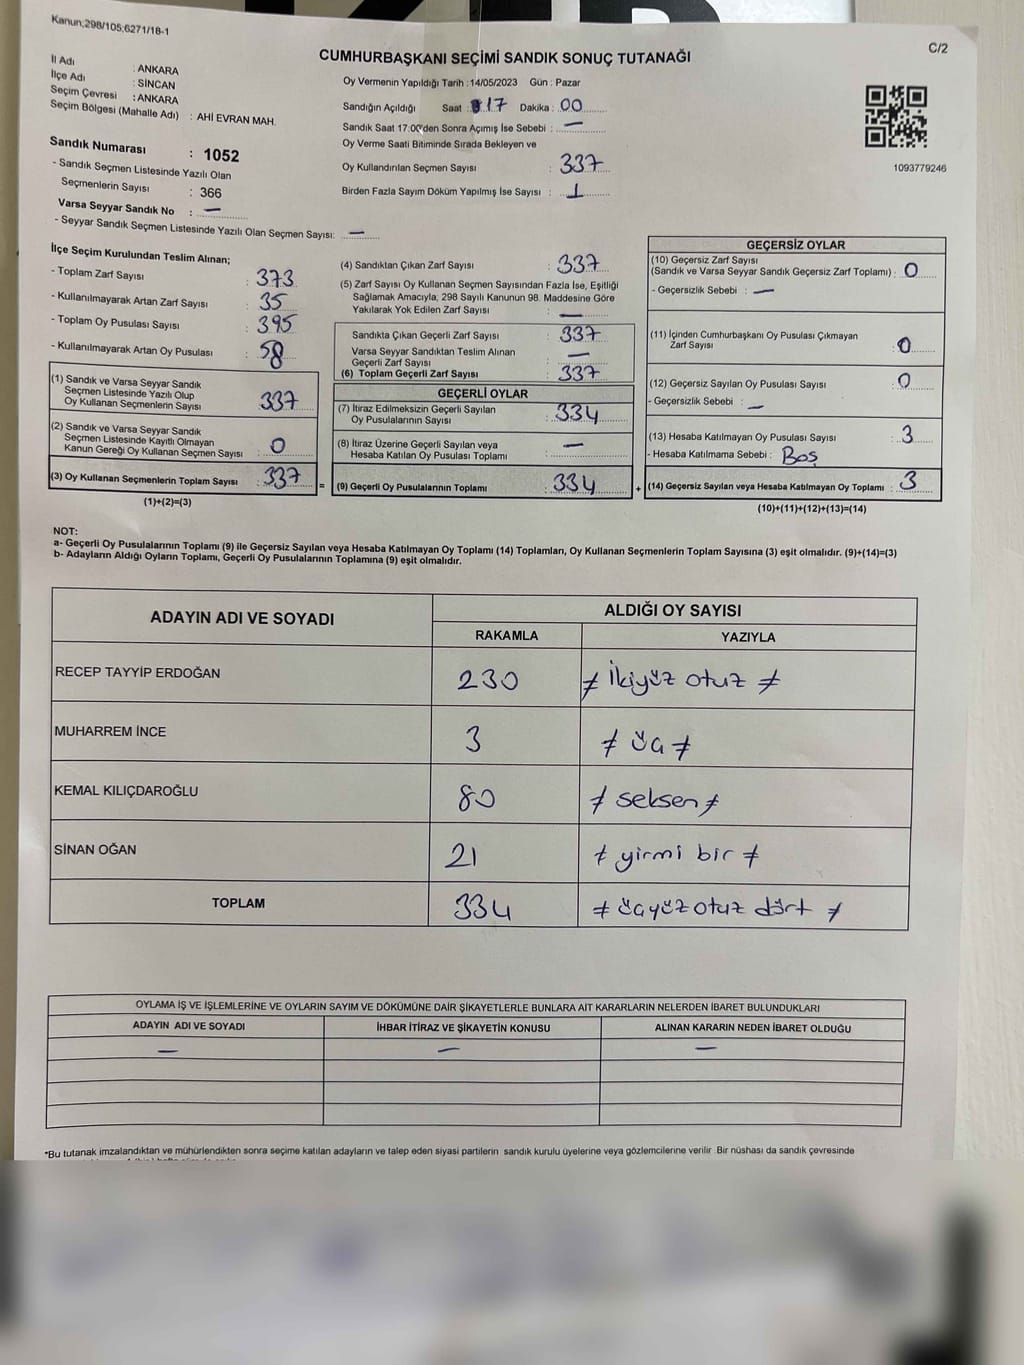 Kanun;298/105;6271/18-1
C/2
CUMHURBAŞKANI SEÇİMİ SANDIK SONUÇ TUTANAĞI
İl Adı : ANKARA
İlçe Adı : SİNCAN
Seçim Çevresi : ANKARA
Seçim Bölgesi (Mahalle Adı) : AHİ EVRAN MAH.
Sandık Numarası : 1052
- Sandık Seçmen Listesinde Yazılı Olan
Seçmenlerin Sayısı : 366
Varsa Seyyar Sandık No : —
- Seyyar Sandık Seçmen Listesinde Yazılı Olan Seçmen Sayısı: —
Oy Vermenin Yapıldığı Tarih : 14/05/2023 Gün : Pazar
Sandığın Açıldığı Saat : 17 Dakika : 00
Sandık Saat 17:00'den Sonra Açımış İse Sebebi : —
Oy Verme Saati Bitiminde Sırada Bekleyen ve
Oy Kullandırılan Seçmen Sayısı : 337
Birden Fazla Sayım Döküm Yapılmış İse Sayısı : 1
1093779246
İlçe Seçim Kurulundan Teslim Alınan;
- Toplam Zarf Sayısı : 373
- Kullanılmayarak Artan Zarf Sayısı : 35
- Toplam Oy Pusulası Sayısı : 395
- Kullanılmayarak Artan Oy Pusulası : 58
(1) Sandık ve Varsa Seyyar Sandık
Seçmen Listesinde Yazılı Olup
Oy Kullanan Seçmenlerin Sayısı : 337
(2) Sandık ve Varsa Seyyar Sandık
Seçmen Listesinde Kayıtlı Olmayan
Kanun Gereği Oy Kullanan Seçmen Sayısı : 0
(3) Oy Kullanan Seçmenlerin Toplam Sayısı : 337 =
(1)+(2)=(3)
(4) Sandıktan Çıkan Zarf Sayısı : 337
(5) Zarf Sayısı Oy Kullanan Seçmen Sayısından Fazla İse, Eşitliği
Sağlamak Amacıyla, 298 Sayılı Kanunun 98. Maddesine Göre
Yakılarak Yok Edilen Zarf Sayısı : —
Sandıkta Çıkan Geçerli Zarf Sayısı : 337
Varsa Seyyar Sandıktan Teslim Alınan
Geçerli Zarf Sayısı : —
(6) Toplam Geçerli Zarf Sayısı : 337
GEÇERLİ OYLAR
(7) İtiraz Edilmeksizin Geçerli Sayılan
Oy Pusulalarının Sayısı : 334
(8) İtiraz Üzerine Geçerli Sayılan veya
Hesaba Katılan Oy Pusulası Toplamı : —
(9) Geçerli Oy Pusulalarının Toplamı : 334 +
GEÇERSİZ OYLAR
(10) Geçersiz Zarf Sayısı
(Sandık ve Varsa Seyyar Sandık Geçersiz Zarf Toplamı) : 0
- Geçersizlik Sebebi : —
(11) İçinden Cumhurbaşkanı Oy Pusulası Çıkmayan
Zarf Sayısı : 0
(12) Geçersiz Sayılan Oy Pusulası Sayısı : 0
- Geçersizlik Sebebi : —
(13) Hesaba Katılmayan Oy Pusulası Sayısı : 3
- Hesaba Katılmama Sebebi : Boş
(14) Geçersiz Sayılan veya Hesaba Katılmayan Oy Toplamı : 3
(10)+(11)+(12)+(13)=(14)
NOT:
a- Geçerli Oy Pusulalarının Toplamı (9) ile Geçersiz Sayılan veya Hesaba Katılmayan Oy Toplamı (14) Toplamları, Oy Kullanan Seçmenlerin Toplam Sayısına (3) eşit olmalıdır. (9)+(14)=(3)
b- Adayların Aldığı Oyların Toplamı, Geçerli Oy Pusulalarının Toplamına (9) eşit olmalıdır.
ADAYIN ADI VE SOYADI ALDIĞI OY SAYISI
RAKAMLA YAZIYLA
RECEP TAYYİP ERDOĞAN 230 ≠ İkiyüz otuz ≠
MUHARREM İNCE 3 ≠ üç ≠
KEMAL KILIÇDAROĞLU 80 ≠ seksen ≠
SİNAN OĞAN 21 ≠ yirmi bir ≠
TOPLAM 334 ≠ üçyüz otuz dört ≠
OYLAMA İŞ VE İŞLEMLERİNE VE OYLARIN SAYIM VE DÖKÜMÜNE DAİR ŞİKAYETLERLE BUNLARA AİT KARARLARIN NELERDEN İBARET BULUNDUKLARI
ADAYIN ADI VE SOYADI İHBAR İTİRAZ VE ŞİKAYETİN KONUSU ALINAN KARARIN NEDEN İBARET OLDUĞU
— — —
*Bu tutanak imzalandıktan ve mühürlendikten sonra seçime katılan adayların ve talep eden siyasi partilerin sandık kurulu üyelerine veya gözlemcilerine verilir Bir nüshası da sandık çevresinde